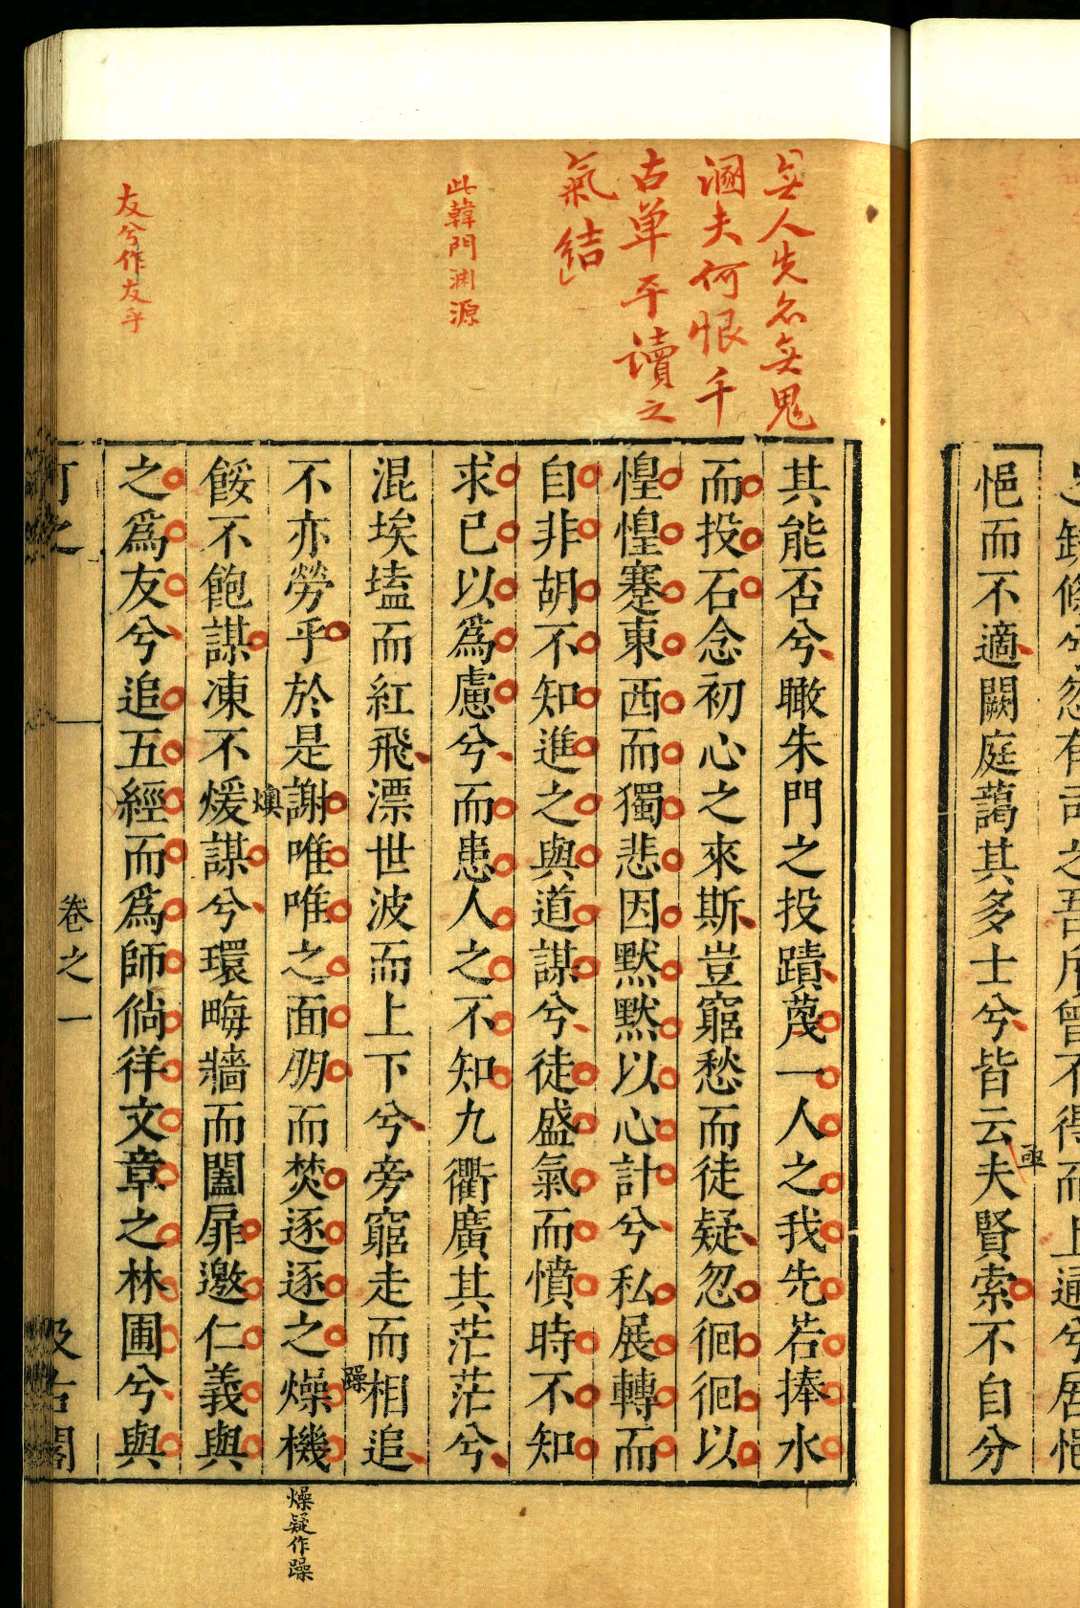 悒而不適闕庭藹其多士兮皆云夫賢索不自分
亟
無人先名無鬼
溷夫何恨千
古单平讀之
氣結
此韓門渊源
友兮作友乎
其能否兮瞰朱門之投蹟蔑一人之我先若捧水
而投石念初心之來斯豈窮愁而徒疑忽徊徊以
惶惶蹇東西而獨悲因默默以心計兮私展轉而
自非胡不知進之與道謀兮徒盛氣而憤時不知
求已以爲慮兮而患人之不知九衢廣其茫茫兮
混埃壒而紅飛漂世波而上下兮旁窮走而相追
不亦勞乎於是謝唯唯之面朋而焚逐逐之燥機
躁
燥疑作躁
餒不飽謀凍不煖謀兮環畮牆而闔扉邀仁義與
之爲友兮追五經而爲師徜徉文章之林圃兮與
卷之一
汲古閣